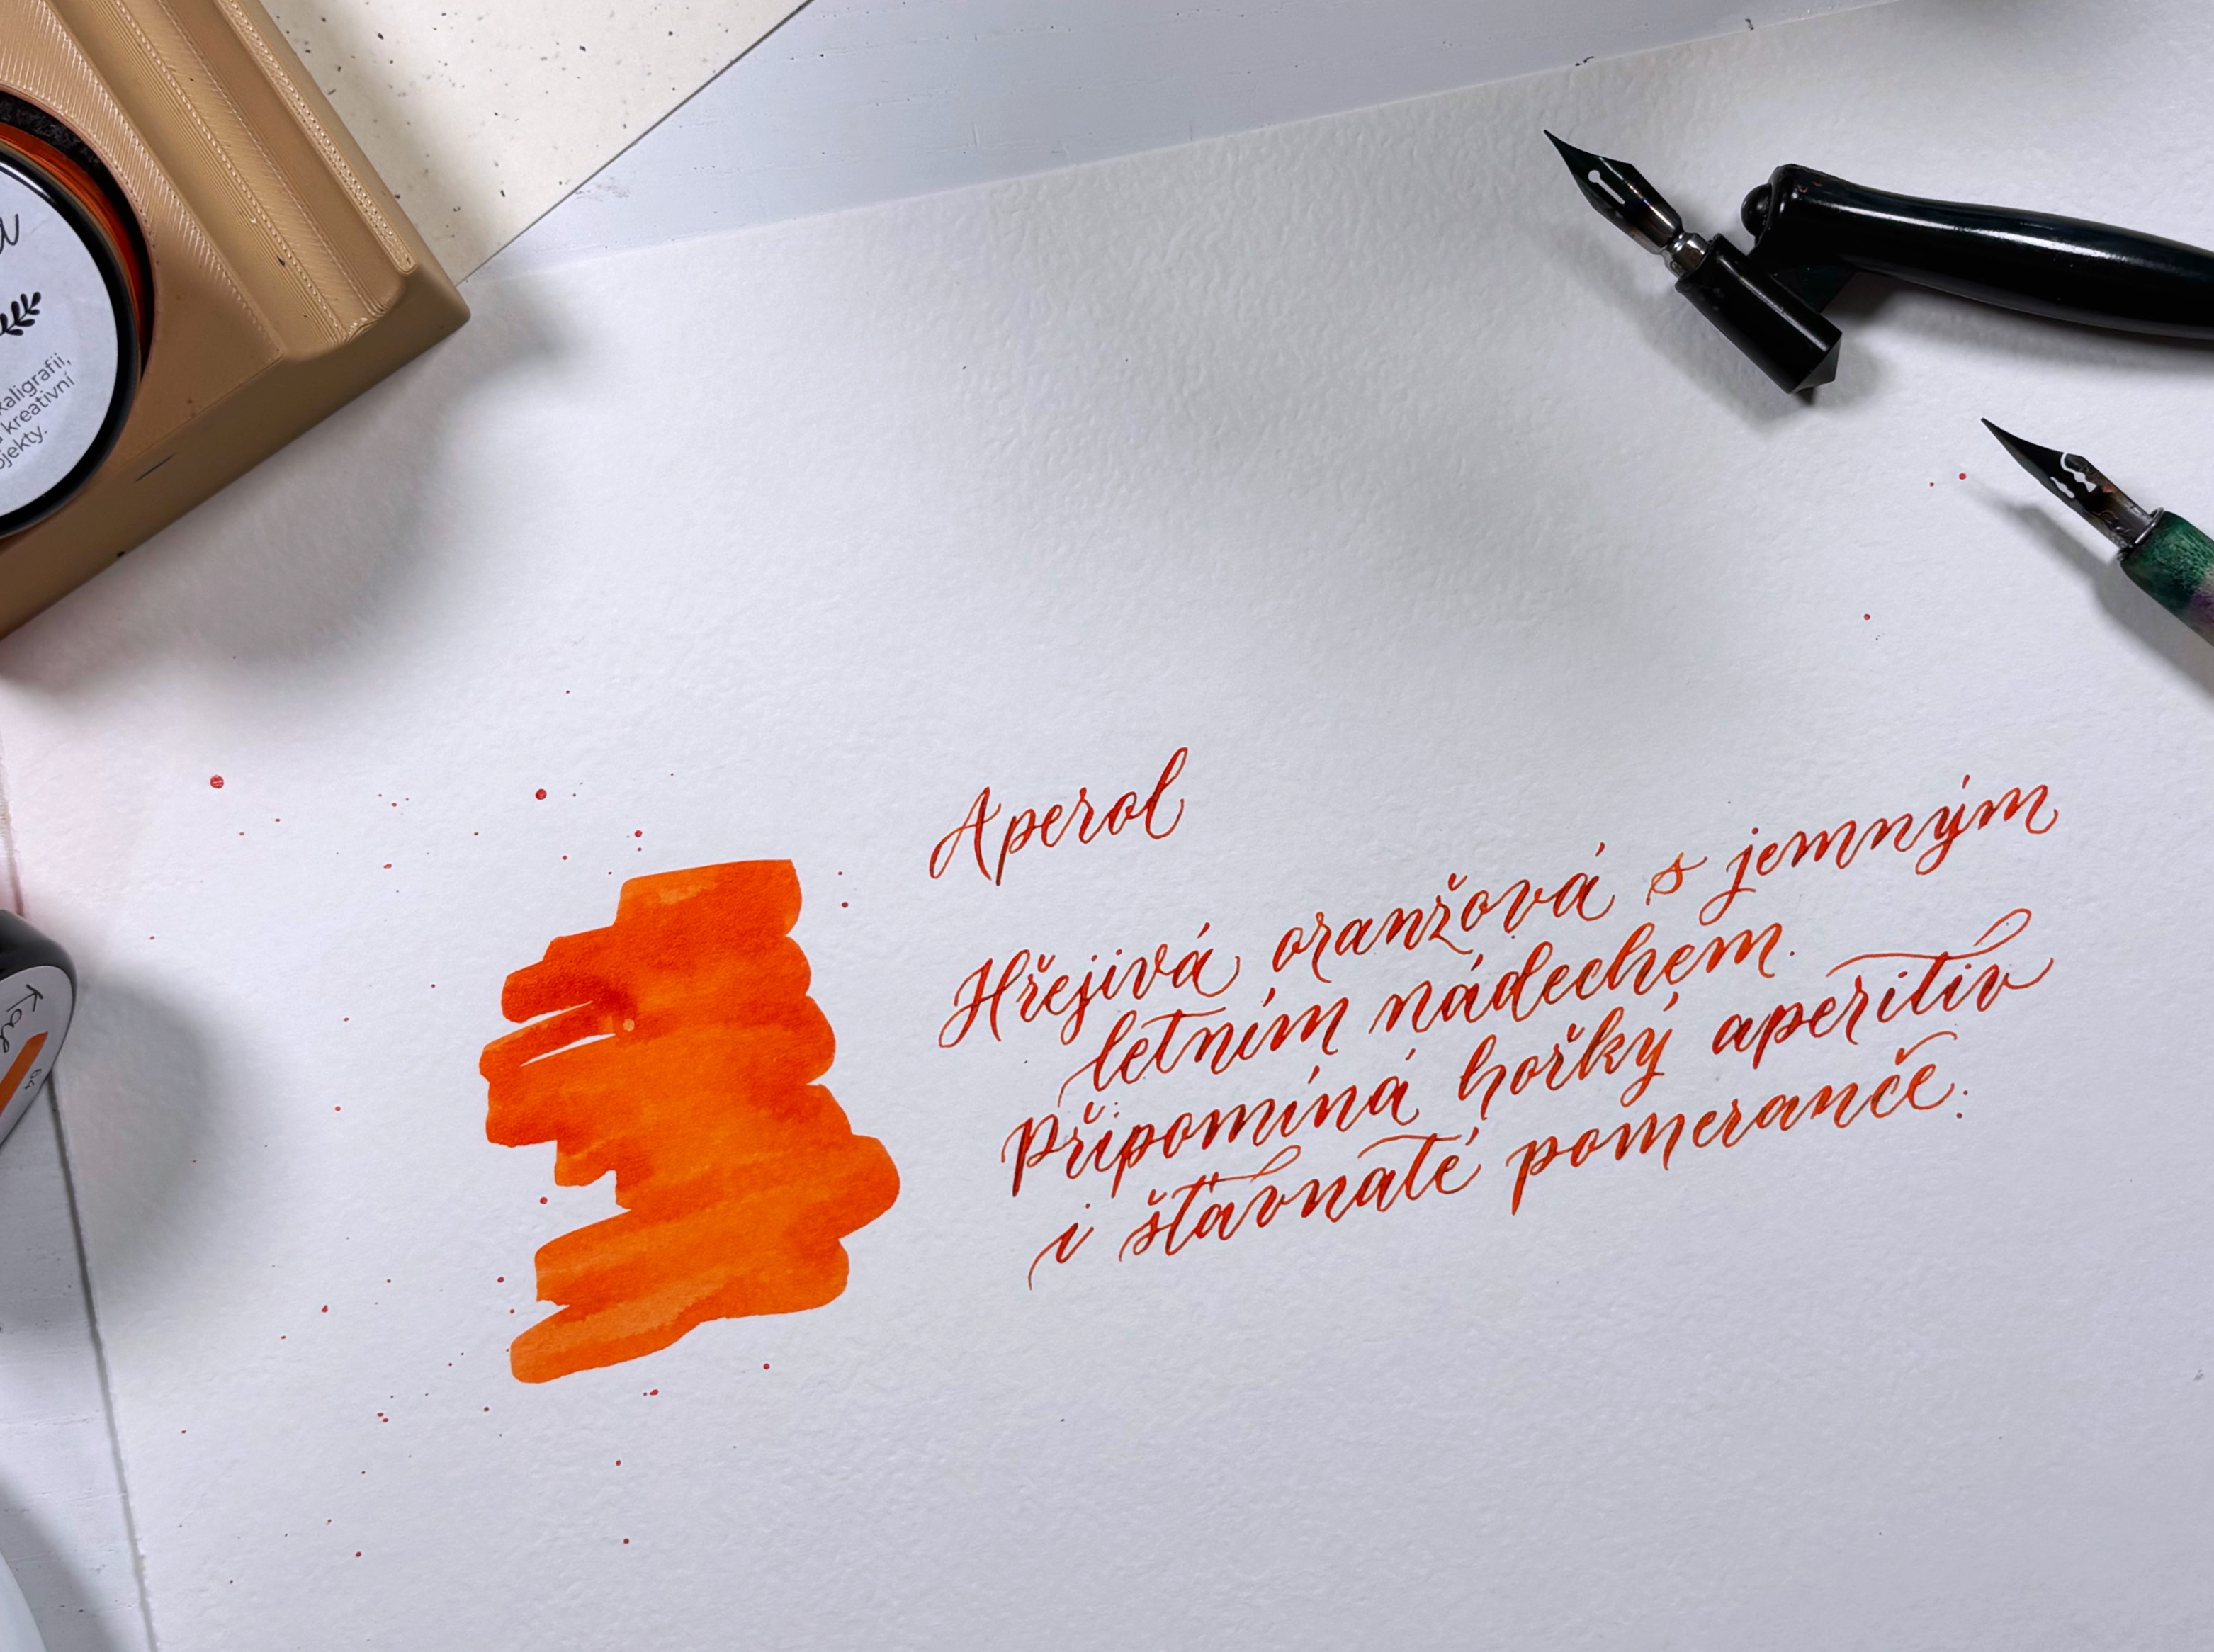 kaligrafii,
kreativní
Aperol
Hřejivá oranžová s jemným
letním nádechem.
Připomíná hořký aperitiv
i šťavnaté pomeranče.